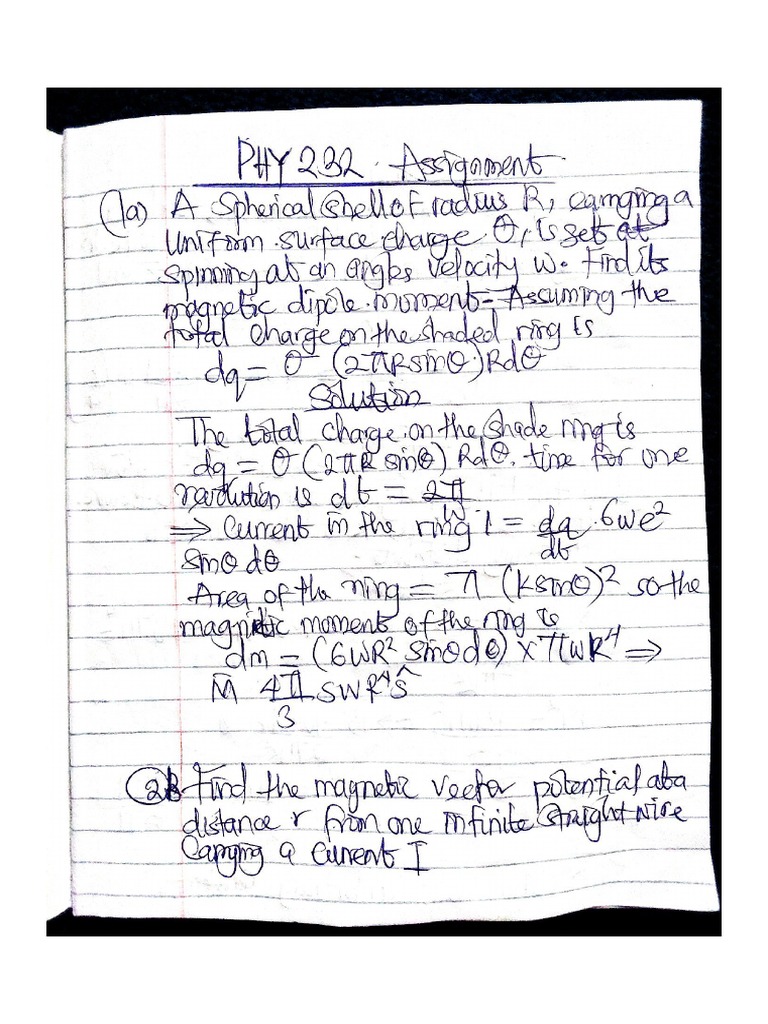 PHY 232. Assignment
(1a) A Spherical shell of radius R, carrying a
Uniform surface charge θ, is set at
spinning at an angles velocity w. find its
magnetic dipole moment - Assuming the
total charge on the shaded ring is
dq = θ (2πRsinθ)Rdθ
Solution
The total charge on the shade ring is
dq = θ(2πR sinθ) Rdθ. time for one
revolution is dt = 2π/w
⇒ Current in the ring I = dq/dt . 6we²
sinθ dθ
Area of the ring = π (Rsinθ)² so the
magnetic moment of the ring is
dm = (6WR² sinθdθ) x πwR⁴ ⇒
M̄ 4π/3 SWR⁴ŝ
(2b) Find the magnetic vector potential at a
distance r from one infinite straight wire
Carrying a Current I